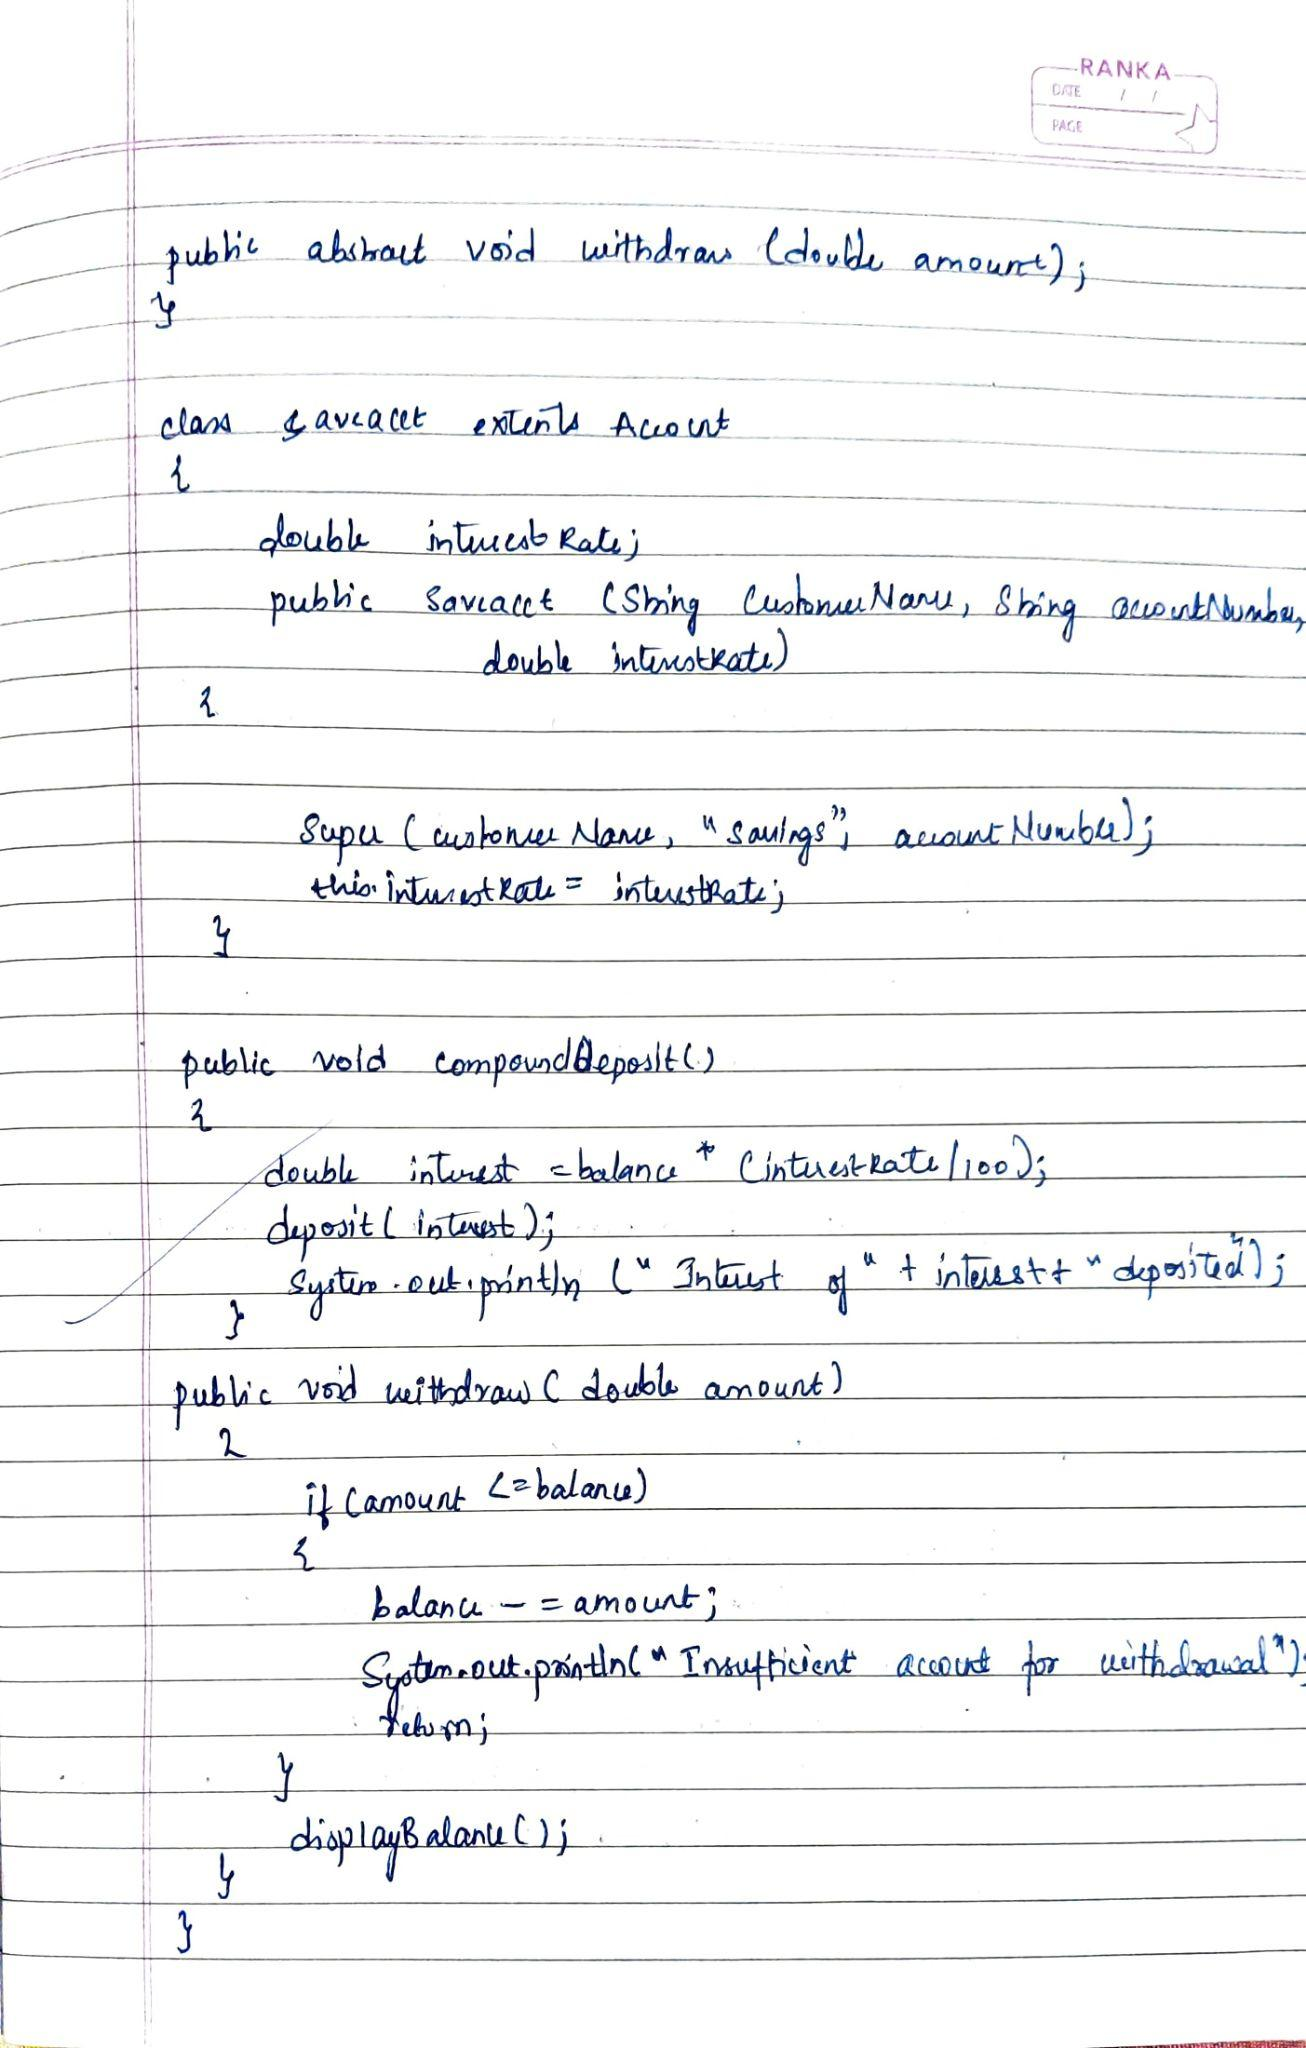 RANKA
DATE / /
PAGE
public abstract void withdraw (double amount);
}
class saveacct extents Account
{
double interestRate;
public Saveacct (String CustomerName, String accountNumber,
double interestRate)
{
Super (customer Name, "savings"; account Number);
this.interestRate = interestRate;
}
public void compoundDeposit()
{
double interest = balance * (interestRate/100);
deposit( interest);
System.out.println (" Interest of " + interest+ " deposited");
}
public void withdraw ( double amount)
{
if (amount <=balance)
{
balance - = amount;
System.out.println(" Insufficient account for withdrawal");
return;
}
displayBalance();
}
}